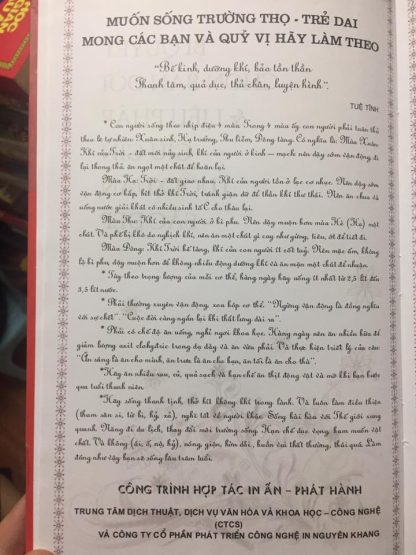 MUỐN SỐNG TRƯỜNG THỌ - TRẺ DAI
MONG CÁC BẠN VÀ QUÝ VỊ HÃY LÀM THEO
"Bế kinh, dưỡng khí, bảo tồn thần
Thanh tâm, quả dục, thả chân, luyện hình".
TUỆ TĨNH
* Con người sống theo nhịp điệu 4 mùa Trong 4 mùa ấy con người phải tuân thủ
theo lẽ tự nhiên: Xuân sinh, Hạ trưởng, Thu liễm, Đông tàng. Có nghĩa là: Mùa Xuân
Khí của Trời - đất mới nảy sinh, khí của người ở kinh - mạch nên dậy sớm vận động đi
lại thong thả ăn ngọt một chất để hoãn lại.
Mùa Hạ: Trời - đất giao nhau, Khí của người tồn ở lạc cơ nhục. Nên dậy sớm
vận động cơ bắp, hít thở khí Trời, tránh giận dữ để thần khí thư thái. Nên ăn chua và
uống nước giải khát có nhiều sinh tố C cho thân lại.
Mùa Thu: Khí của con người ở bì phu. Nên dậy muộn hơn mùa Hè (Hạ) một
chất. Vì phế bị khô do nghịch khí, nên ăn một chất gì cay như gừng, tiêu, ớt để tiết đi.
Mùa Đông: Khí Trời bế tàng, khí của con người ở cốt tuỷ. Nên mặc ấm, không
lộ bì phu, dậy muộn hơn để không nhiễu động dương khí và ăn mặn một chất để nhuận.
* Tùy theo trọng lượng của mỗi cơ thể, hàng ngày hãy uống ít nhất từ 2,5 lít đến
3,5 lít nước.
* Phải thường xuyên vận động, xoa bóp cơ thể. "Ngừng vận động là đồng nghĩa
với sự chết". "Cuộc đời càng ngắn lại khi thắt lưng dài ra".
* Phải có chế độ ăn uống, nghỉ ngơi khoa học. Hàng ngày nên ăn nhiều bữa để
giảm lượng axit clohydric trong dạ dày và ăn vừa phải. Và thực hiện triết lý của câu:
"Ăn sáng là ăn cho mình, ăn trưa là ăn cho bạn, ăn tối là ăn cho thù".
* Hãy ăn nhiều rau, củ, quả sạch và hạn chế ăn thịt động vật và mỡ khi bạn bước
qua tuổi thanh niên.
* Hãy sống thanh tịnh, thở hít không khí trong lành. Và luôn làm điều thiện
(tham sân si, từ bi, hỷ, xả), nghĩ tốt về người khác. Sống hài hòa với Thế giới xung
quanh. Năng đi du lịch, thay đổi môi trường sống. Hạn chế dục vọng, ham muốn vật
chất. Và không (ái, ố, nộ, hỷ), nóng giận, hờn dỗi, buồn vui thất thường, thái quá. Làm
đúng như vậy bạn sẽ sống lâu trăm tuổi.
CÔNG TRÌNH HỢP TÁC IN ẤN - PHÁT HÀNH
TRUNG TÂM DỊCH THUẬT, DỊCH VỤ VĂN HÓA VÀ KHOA HỌC - CÔNG NGHỆ
(CTCS)
VÀ CÔNG TY CỔ PHẦN PHÁT TRIỂN CÔNG NGHỆ IN NGUYÊN KHANG